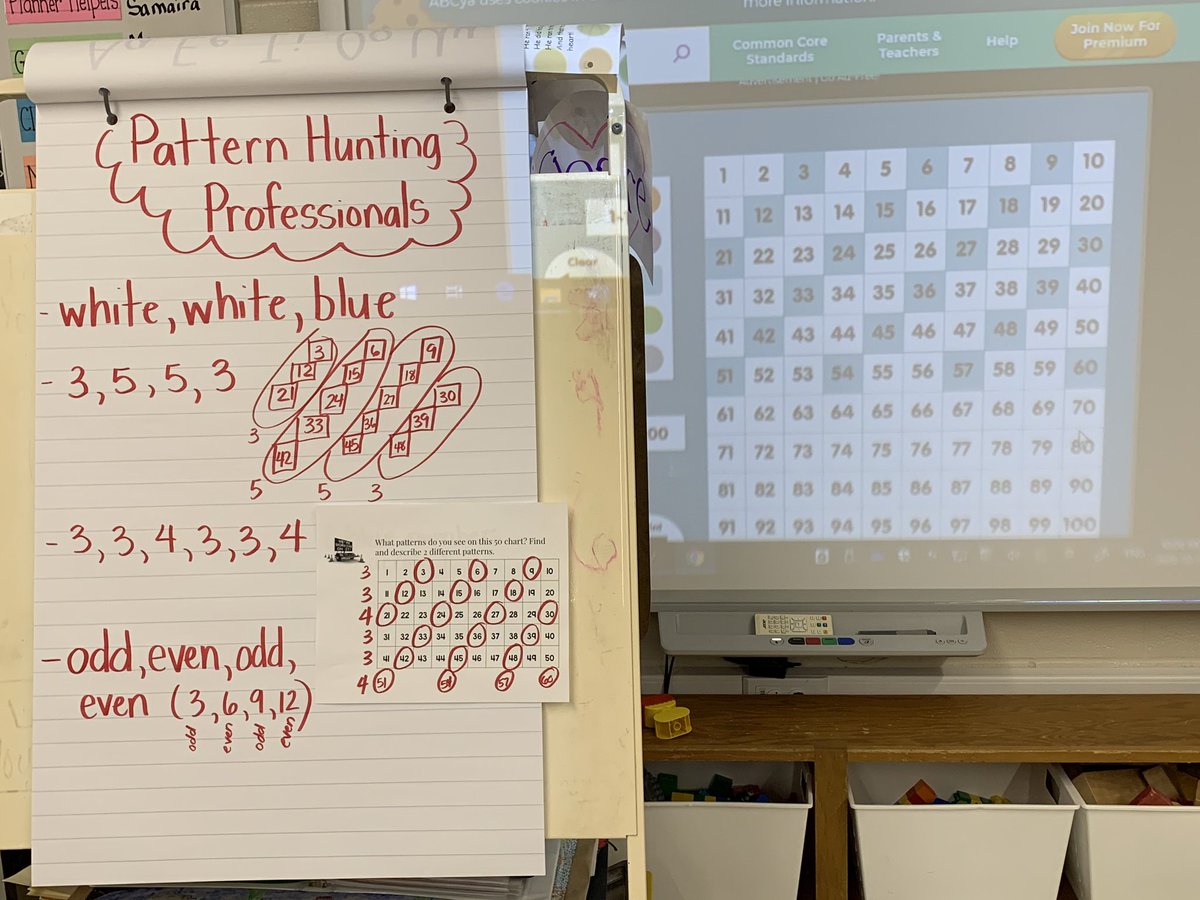 Planner Helpers
Samaira
Pattern Hunting
Professionals
- white, white, blue
- 3, 5, 5, 3
3 6 9
12 15 18
21 24 27 30
33 36 39
42 45 48
3
5 5 3
- 3, 3, 4, 3, 3, 4
- odd, even, odd,
even (3, 6, 9, 12)
odd even odd even
What patterns do you see on this 50 chart? Find
and describe 2 different patterns.
3 1 2 3 4 5 6 7 8 9 10
3 11 12 13 14 15 16 17 18 19 20
4 21 22 23 24 25 26 27 28 29 30
3 31 32 33 34 35 36 37 38 39 40
3 41 42 43 44 45 46 47 48 49 50
4 51 54 57 60
more information.
Common Core
Standards
Parents &
Teachers
Help
Join Now For
Premium
Advertisement | Go Ad Free
Clear
1 2 3 4 5 6 7 8 9 10
11 12 13 14 15 16 17 18 19 20
21 22 23 24 25 26 27 28 29 30
31 32 33 34 35 36 37 38 39 40
41 42 43 44 45 46 47 48 49 50
51 52 53 54 55 56 57 58 59 60
61 62 63 64 65 66 67 68 69 70
71 72 73 74 75 76 77 78 79 80
81 82 83 84 85 86 87 88 89 90
91 92 93 94 95 96 97 98 99 100